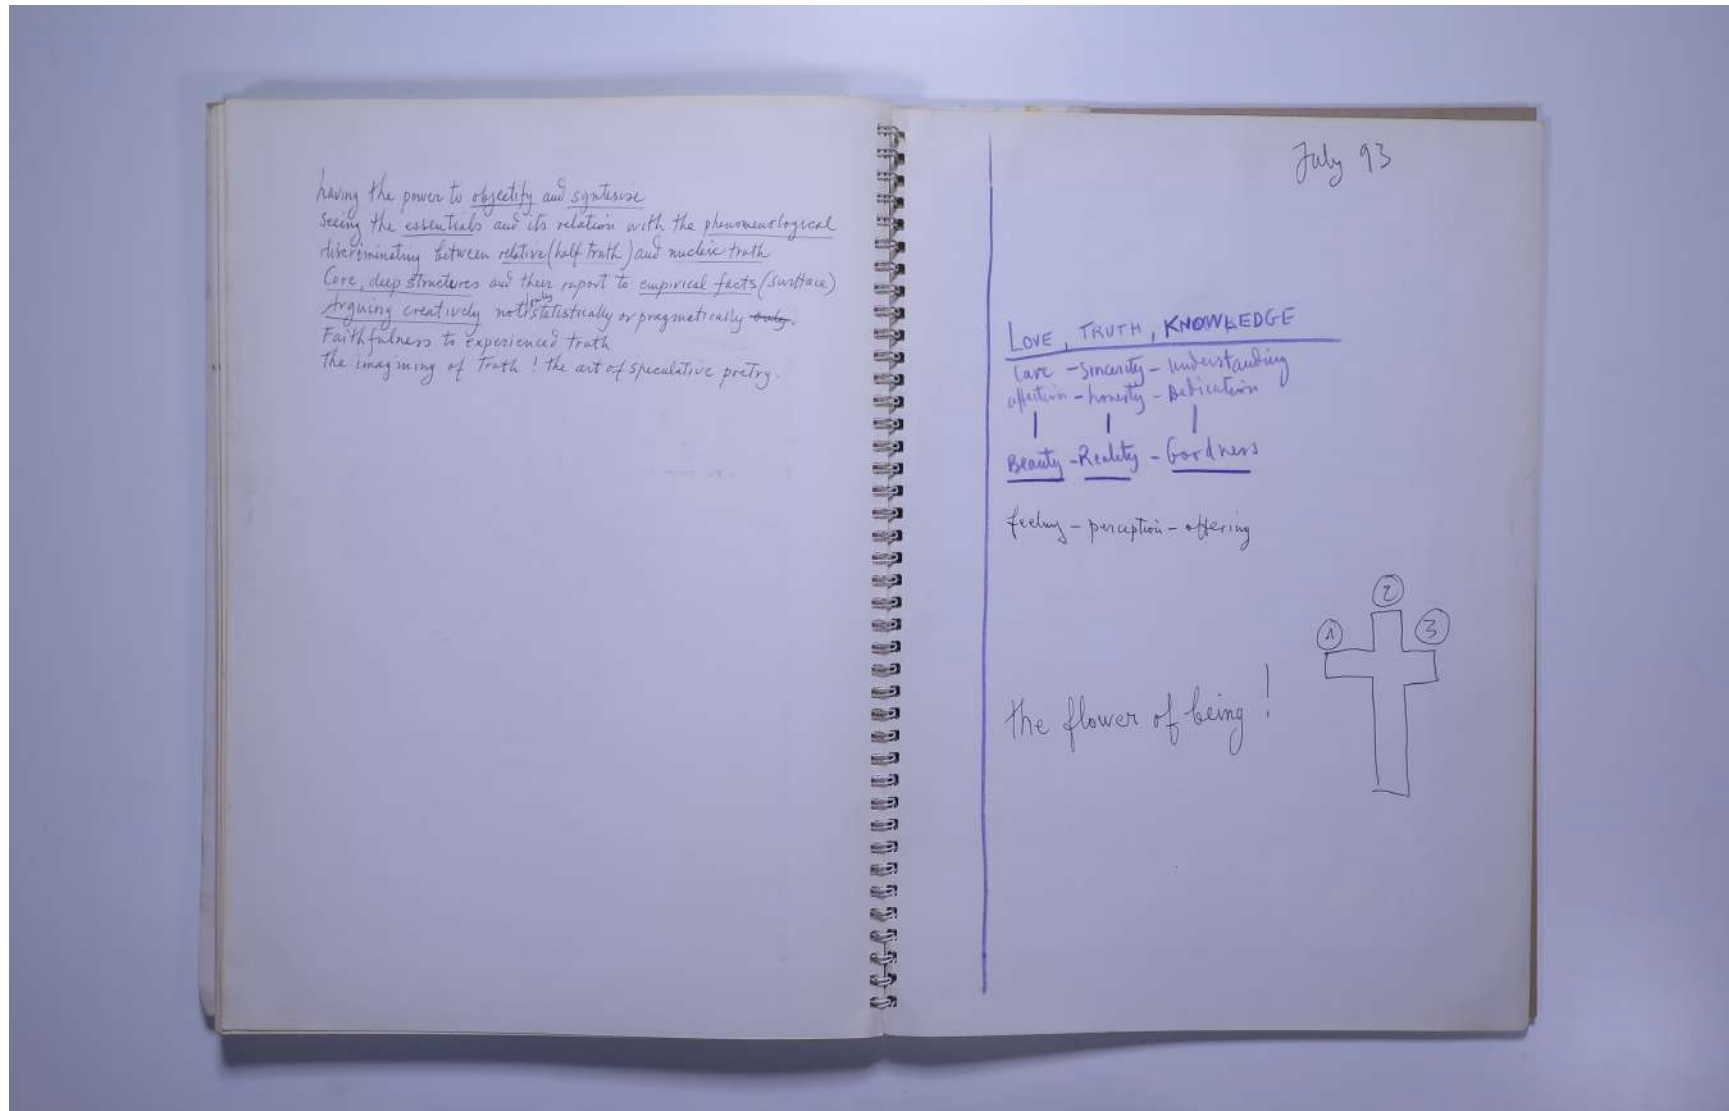 having the power to objectify and syntesise
Seeing the essentials and its relation with the phenomenological
discriminating between relative (half truth) and nucleic truth
Core, deep structures and their raport to empirical facts (surfface)
Arguing creatively not only statistically or pragmatically only.
Faithfulness to experienced truth
The imagining of Truth ! the art of speculative poetry.
July 93
LOVE, TRUTH, KNOWLEDGE
Care - Sincerity - Understanding
affection - honesty - Dedication
Beauty - Reality - Goodness
feeling - perception - offering
2
1 3
the flower of being !